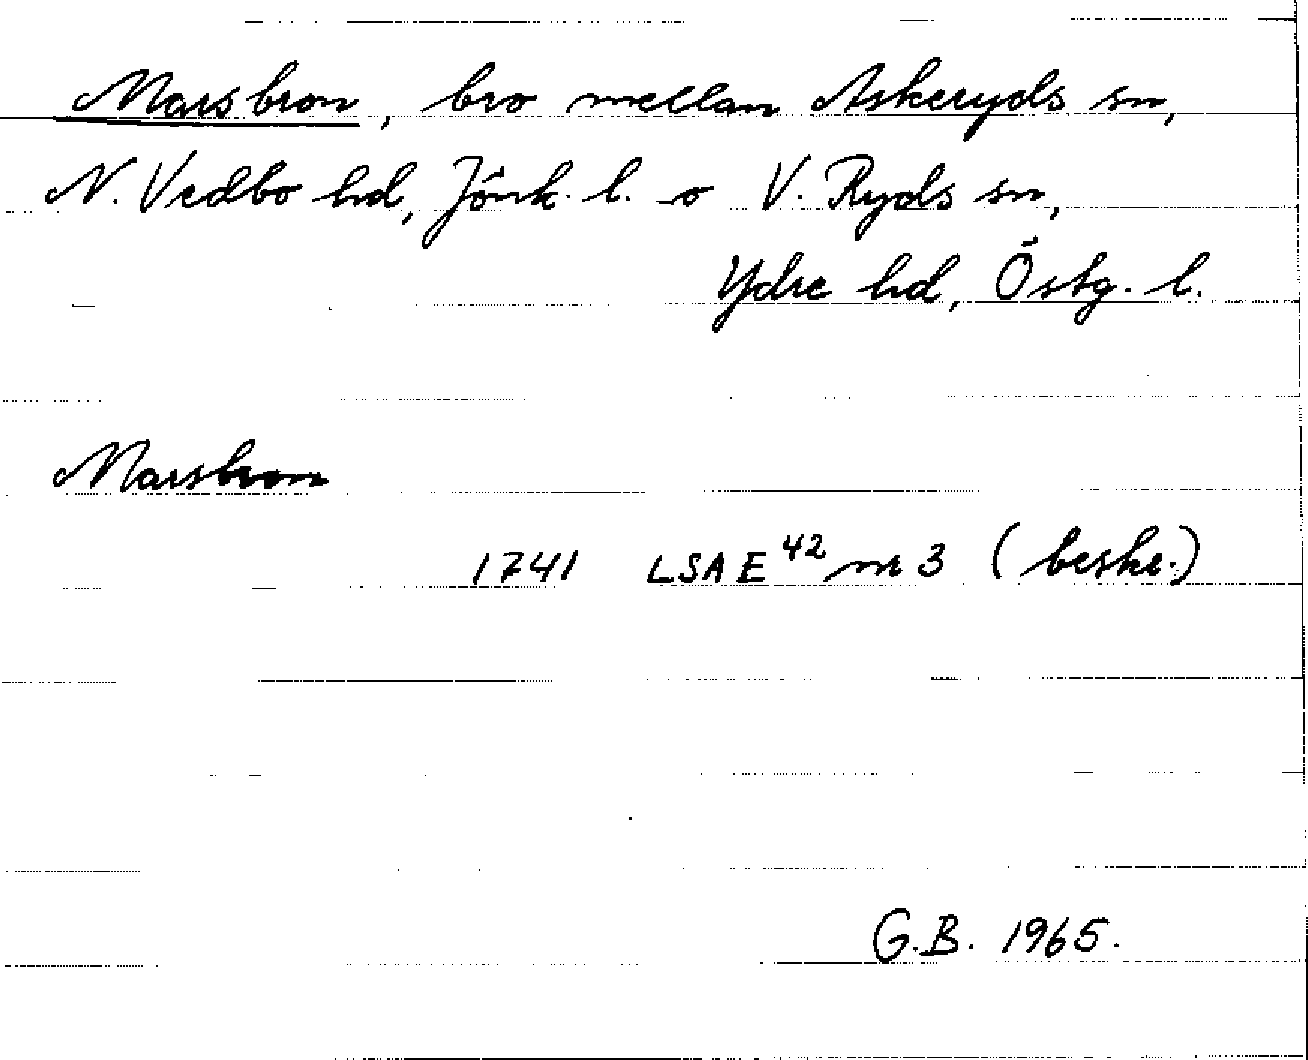 Marsbron, bro mellan Askeryds sn,
N. Vedbo hd, Jönk. l. o V. Ryds sn,
Ydre hd, Östg. l.
Marsbron
1741 LSA E 42 nr 3 (beskr.)
G.B. 1965.